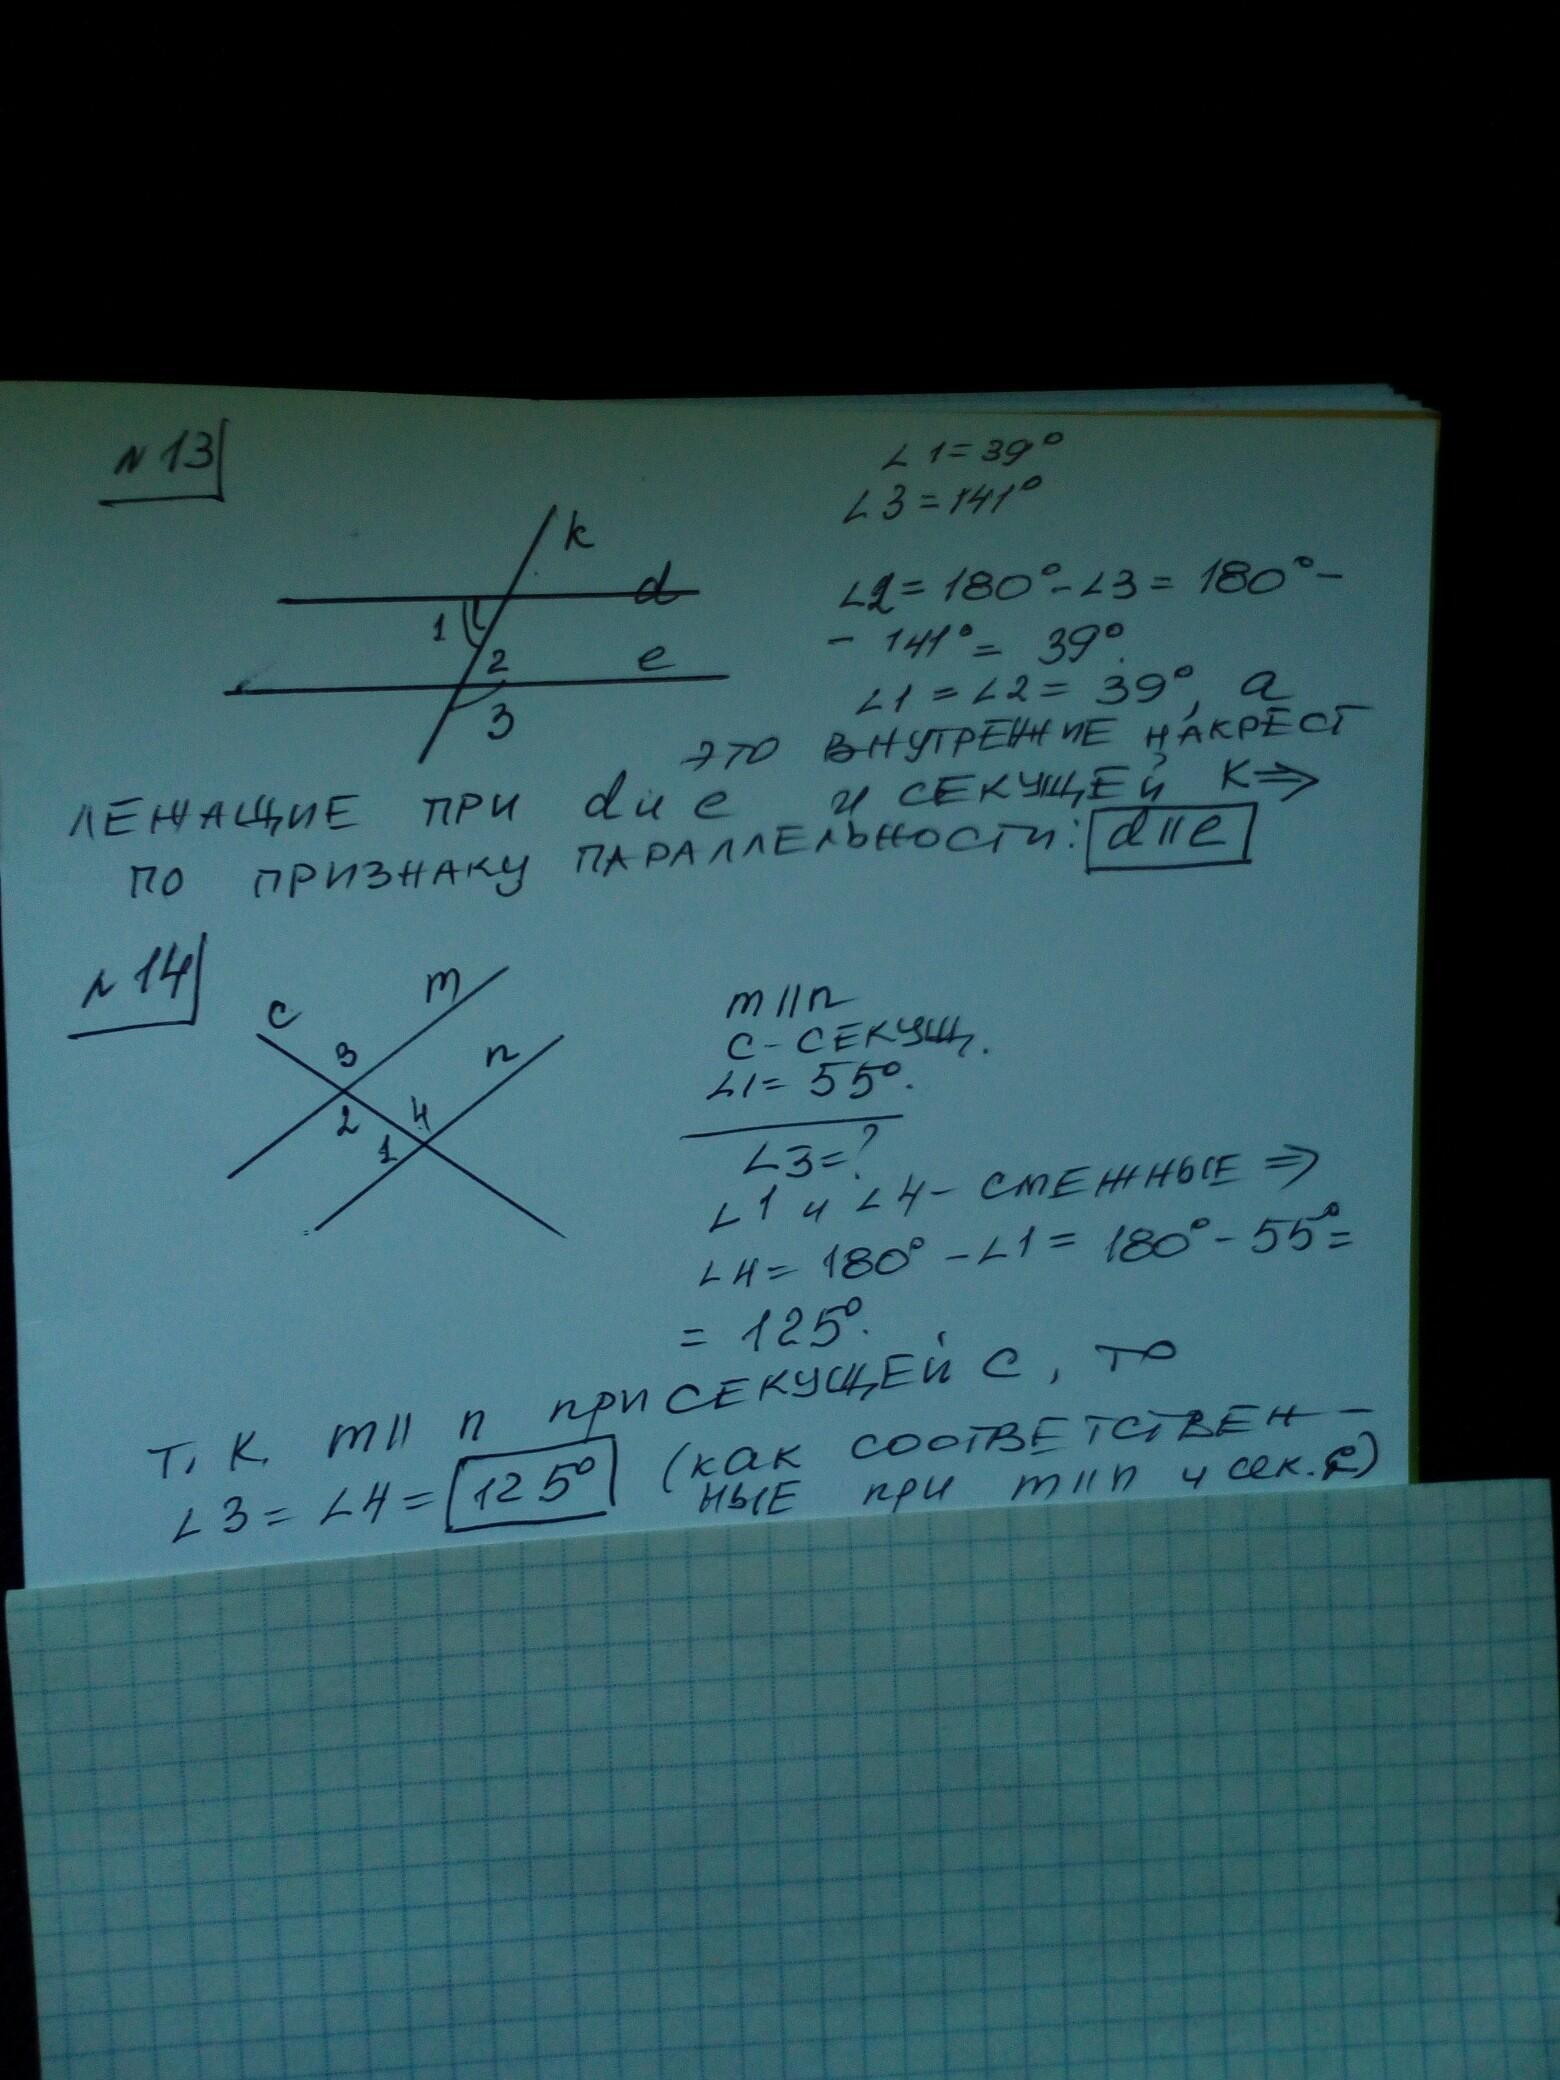 N 13
∠1=39°
∠3=141°
k
d
1
2
e
3
∠2=180°-∠3=180°-
- 141°= 39°.
∠1=∠2=39°, а
это ВНУТРЕННИЕ НАКРЕСТ
ЛЕЖАЩИЕ ПРИ d и e и СЕКУЩЕЙ К⇒
ПО ПРИЗНАКУ ПАРАЛЛЕЛЬНОСТИ: d||e
N 14
c
m
3
n
2
4
1
m||n
C-СЕКУЩ.
∠1=55°.
∠3=?
∠1 и ∠4- СМЕЖНЫЕ ⇒
∠4=180°-∠1=180°-55°=
= 125°.
Т.К. m||n при СЕКУЩЕЙ С, то
∠3=∠4=125° (как СООТВЕТСТВЕН-
НЫЕ при m||n и сек.c)